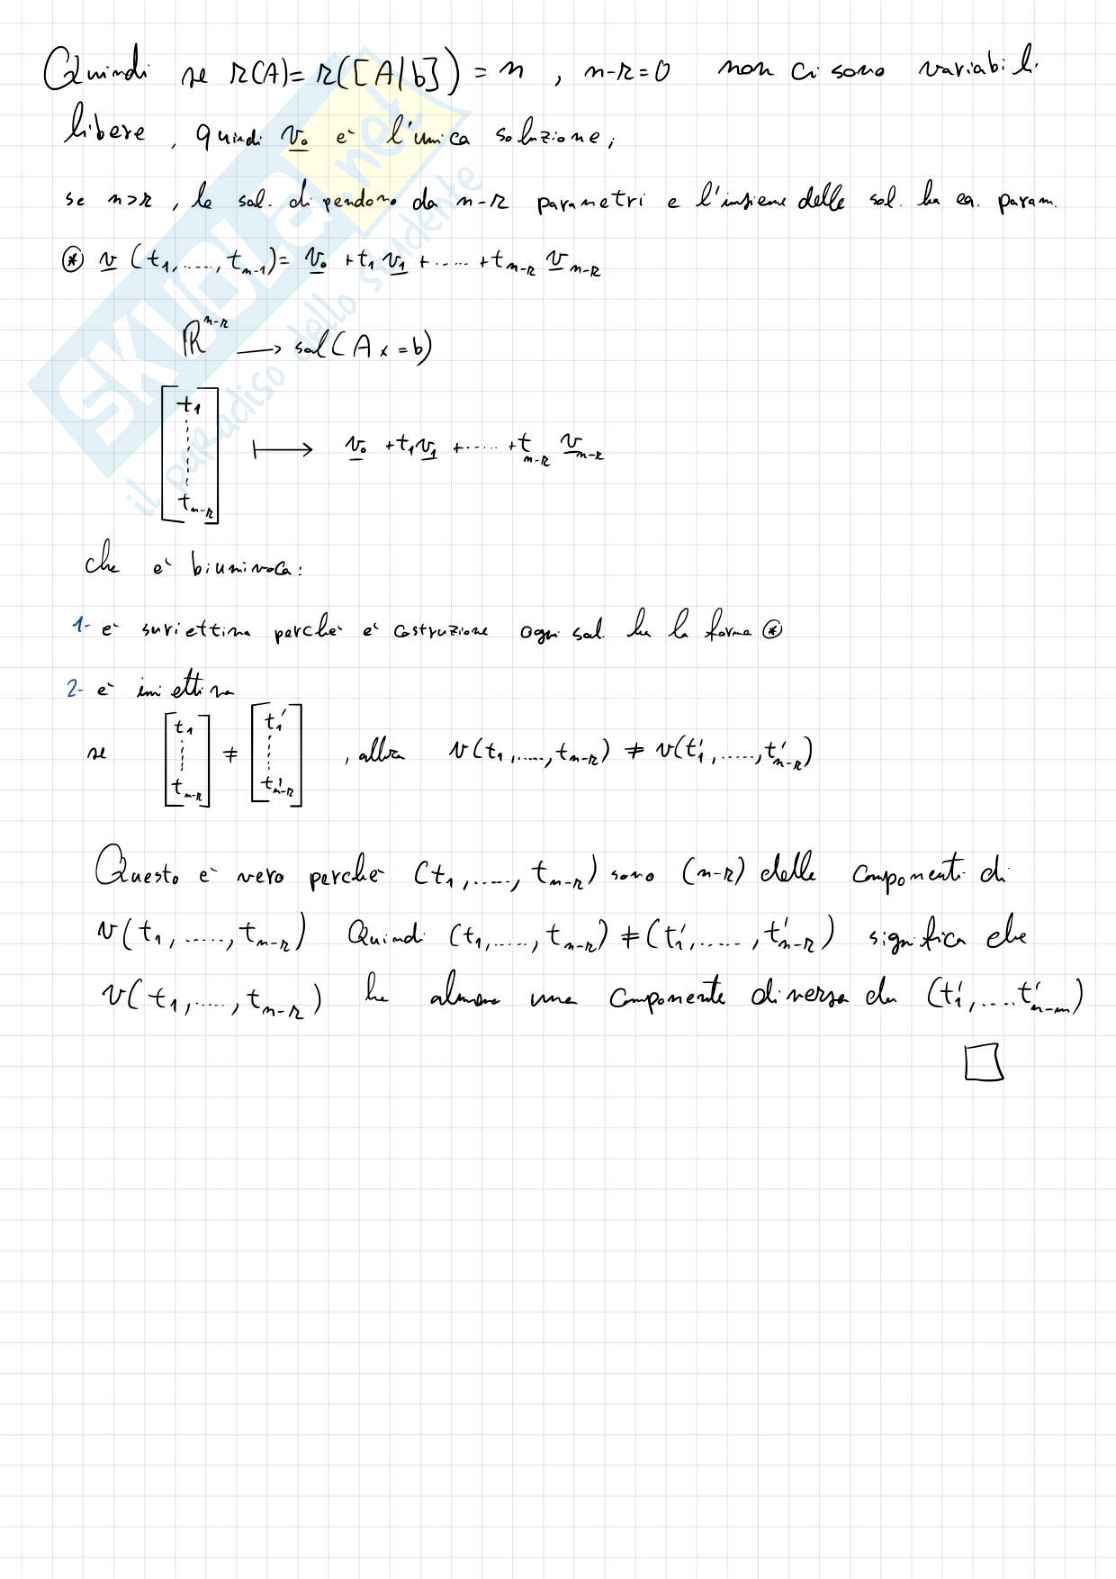 Quindi se r(A)=r([A|b])=n, n-r=0 non ci sono variabili
libere, quindi v₀ è l'unica soluzione;
se n>r, le sol. dipendono da n-r parametri e l'insieme delle sol. ha eq. param.
⊛ v(t₁,....,tₙ₋₁)= v₀ +t₁v₁+.....+tₙ₋ᵣ vₙ₋ᵣ
ℝⁿ⁻ʳ → sol(Ax=b)
[t₁ ⋮ tₙ₋ᵣ] ↦ v₀ +t₁v₁ +.....+tₙ₋ᵣ vₙ₋ᵣ
che è biunivoca:
1- è suriettiva perché è costruzione ogni sol. ha la forma ⊛
2- è iniettiva
se [t₁ ⋮ tₙ₋ᵣ] ≠ [t₁' ⋮ t'ₙ₋ᵣ], allora v(t₁,....,tₙ₋ᵣ) ≠ v(t₁',.....,t'ₙ₋ᵣ)
Questo è vero perché (t₁,....,tₙ₋ᵣ) sono (n-r) delle componenti di
v(t₁,.....,tₙ₋ᵣ) Quindi (t₁,....,tₙ₋ᵣ) ≠ (t₁',.....,t'ₙ₋ᵣ) significa che
v(t₁,....,tₙ₋ᵣ) ha almeno una componente diversa da (t₁',....t'ₙ₋ₘ)
□
SKUOLA.net
il paradiso dello studente